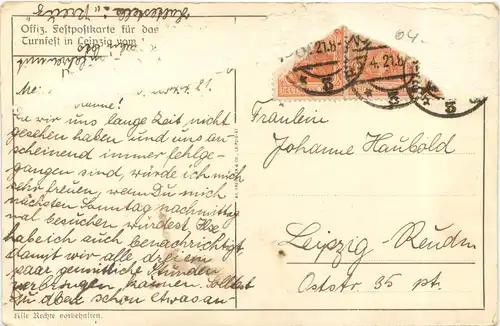 Offiz. Festpostkarte für das
Turnfest in Leipzig vom
21.
Da wir uns lange Zeit nicht
gesehen haben und uns an-
scheinend immer fehlge-
gangen sind, würde ich mich
sehr freuen, wenn Du mich
nächsten Sonntag nachmittag
mal besuchen würdest. Ilse
habe ich auch benachrichtigt,
damit wir alle drei ein
paar gemütliche Stunden
verbringen können. Solltest
Du aber schon etwas an-
Alle Rechte vorbehalten.
64-
21.8
4.21.8
Fräulein
Johanne Haubold
Leipzig-Reudn.
Oststr. 35 pt.